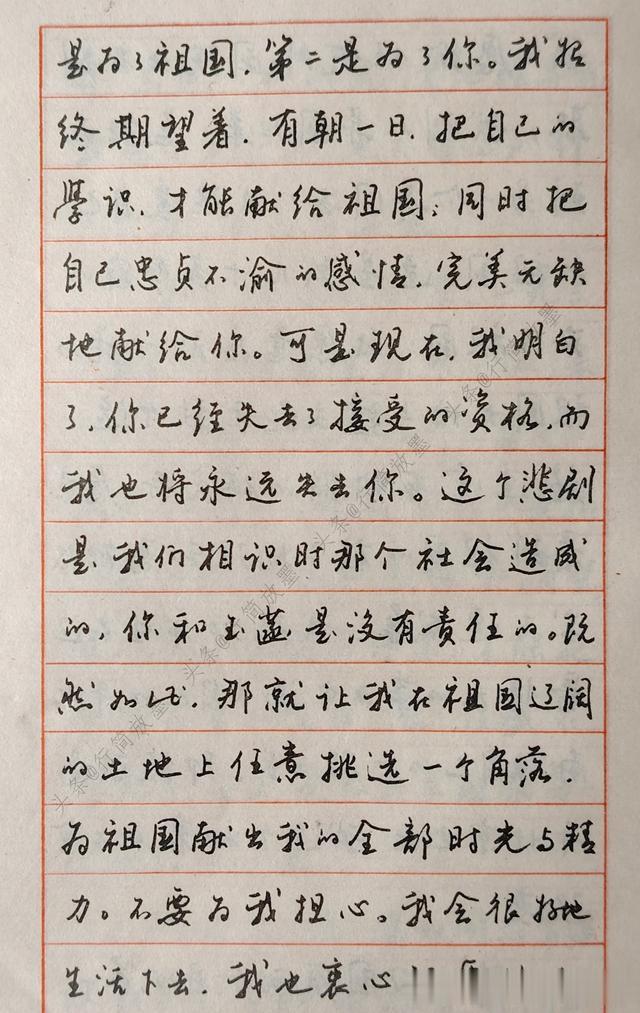 是为了祖国，第二是为了你。我始
终期望着，有朝一日，把自己的
学识、才能献给祖国；同时把
自己忠贞不渝的感情，完美无缺
地献给你。可是现在，我明白
了，你已经失去了接受的资格，而
我也将永远失去你。这个悲剧
是我们相识时那个社会造成
的，你和玉蓝是没有责任的。既
然如此，那就让我在祖国辽阔
的土地上任意挑选一个角落，
为祖国献出我的全部时光与精
力。不要为我担心。我会很好地
生活下去，我也衷心
头条@行简放墨
头条@行简放墨
头条@行简放墨
头条@行简放墨